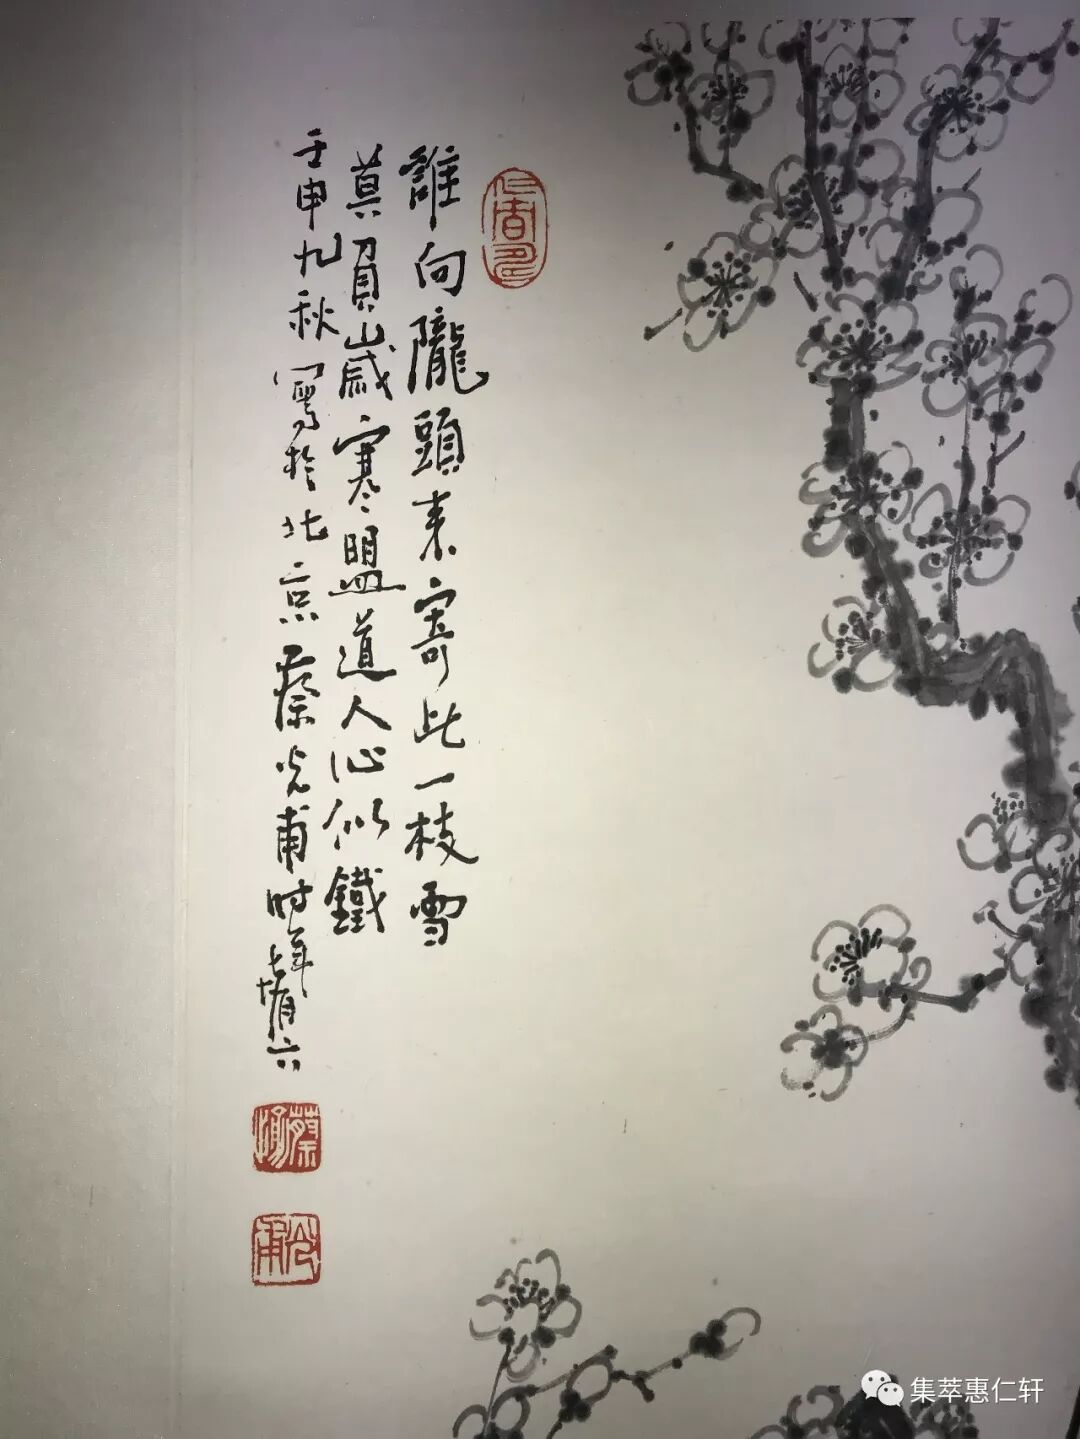 誰向隴頭来寄此一枝雪
莫負歲寒盟道人心似鐵
壬申九秋寫於北京蔡光甫时年七十有六
集萃惠仁轩